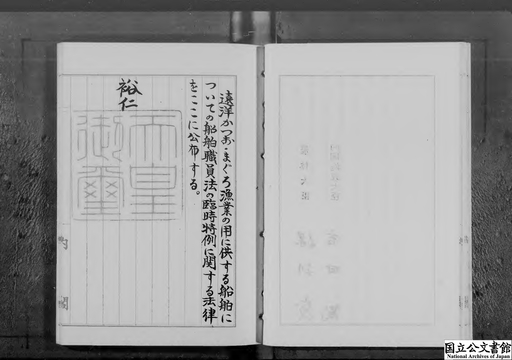 遠洋かつお・まぐろ漁業の用に供する船舶に
ついての船舶職員法の臨時特例に関する法律
をここに公布する。
裕仁
天皇
御璽
国立公文書館
National Archives of Japan